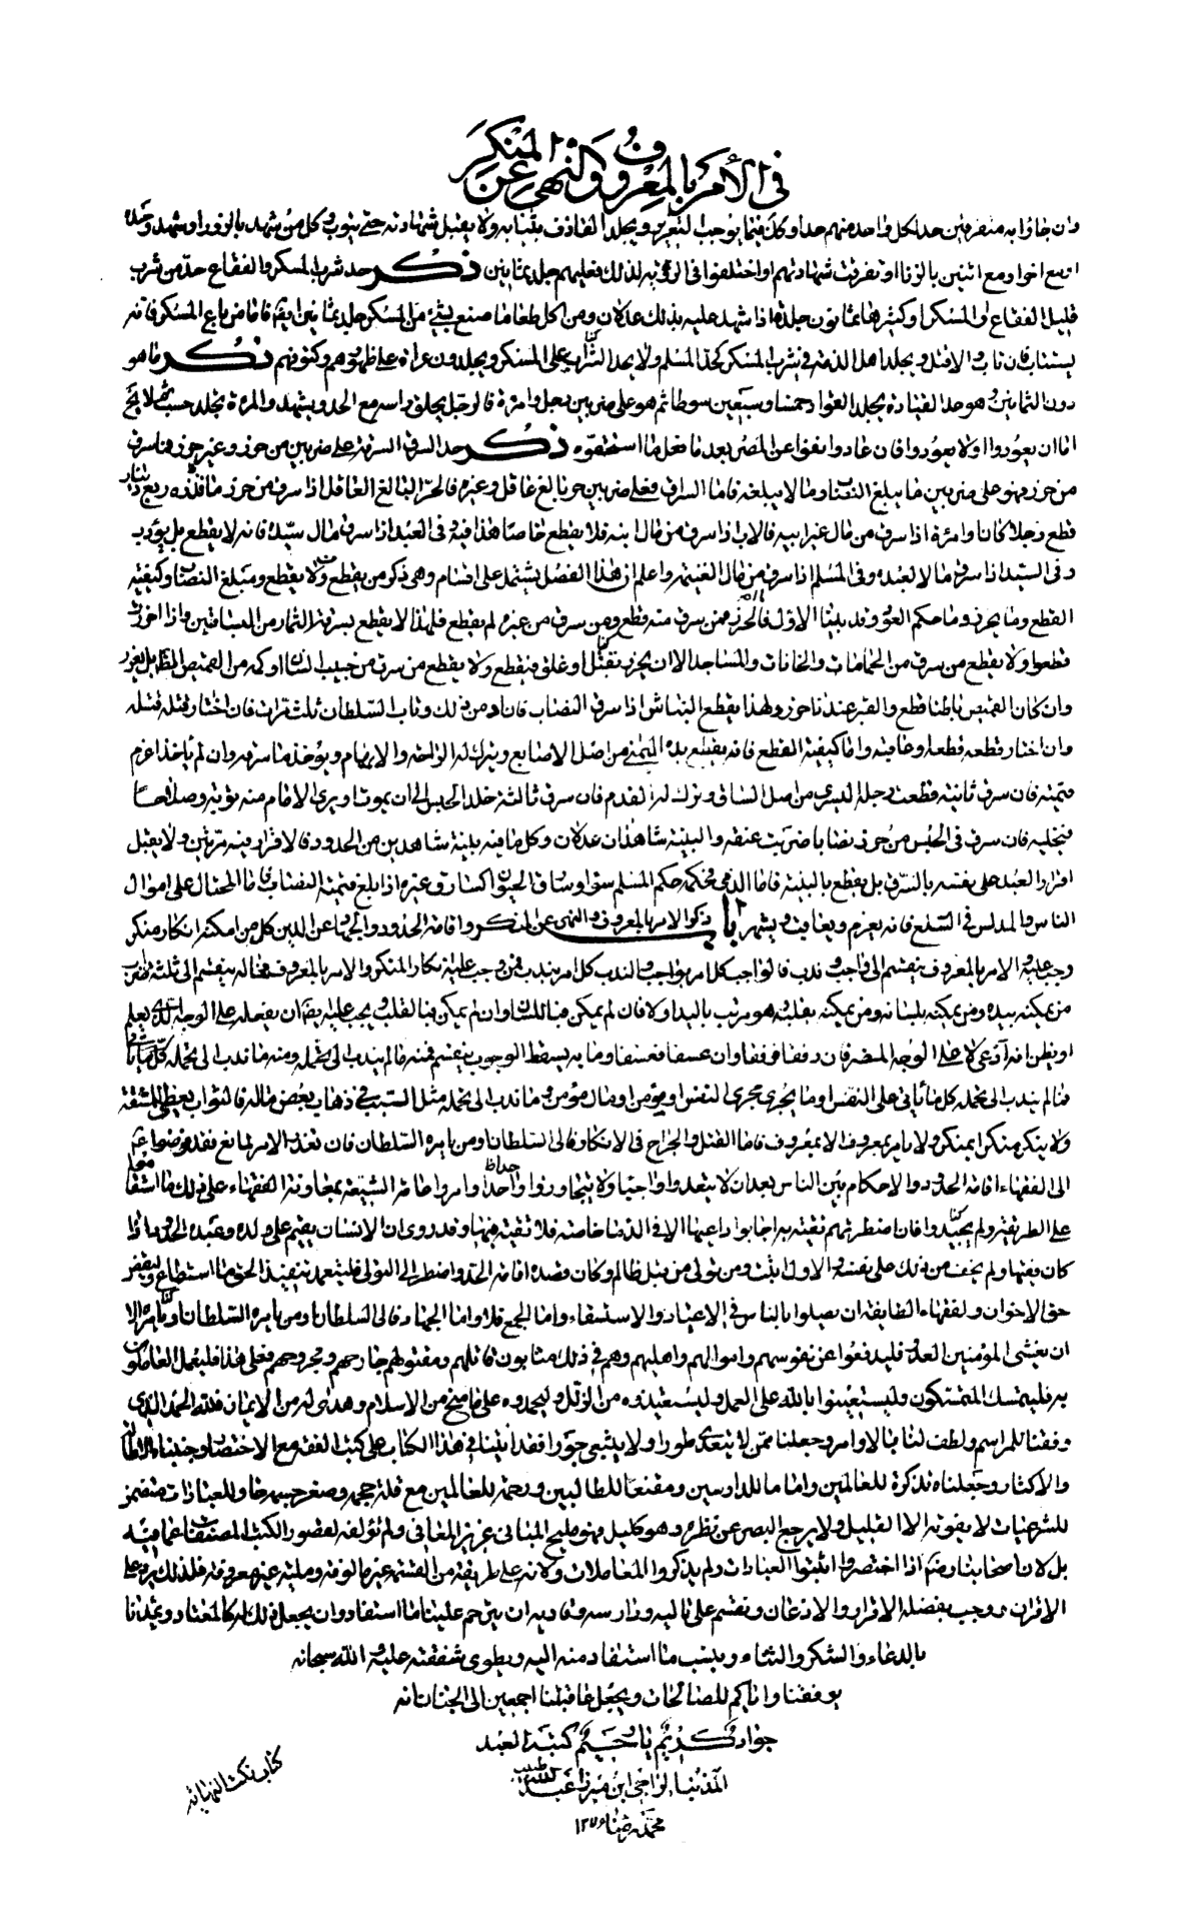 في الأمر بالمعروف والنهي عن المنكر
وان جاؤا به متفرقين حد لكل واحد منهم حدا وكل فيما يوجب التعزير ويجلد القاذف بثيابه ولا يقبل شهادته حتى يتوب وكل من شهد بالزور او شهد وحده
او مع اخر او مع اثنين بالزنا او تفرقت شهادتهم او اختلفوا في الرؤية لذلك فعليهم جلد ثمانين ذكر حد شرب المسكر والفقاع حد من شرب
قليل الفقاع او المسكر او كثيرهما ثمانون جلدة اذا شهد عليه بذلك عدلان ومن اكل طعاما صنع بشئ من المسكر جلد ثمانين ايضا فاما من باع المسكر فانه
يستتاب فان تاب والا قتل ويجلد اهل الذمة في شرب المسكر كحد المسلم ولا يحد الشراب على المسكر ويجلدون عراة على ظهورهم وكتوفهم ذكر ما هو
دون الثمانين وهو حد القيادة يجلد القواد خمسا وسبعين سوطا ثم هو على ضربين رجل وامرة فالرجل يحلق راسه مع الحد ويشهر والمرة يجلد حسب ثم لا يخ
اما ان يعودوا او لا يعودوا فان عادوا نفوا عن المصر بعد ما فعل ما استحقوه ذكر حد السرق السرقة على ضربين من حرز وغير حرز فما سرق
من حرز فهو على ضربين ما يبلغ النصاب وما لا يبلغه فاما السارق فعلى ضربين حر بالغ عاقل وغيره فالحر البالغ العاقل اذا سرق من حرز ما قدره ربع دينار
قطع رجلا كان وامرة اذا سرق من مال غير ابيه فالاب اذا سرق من مال ابنه فلا يقطع خاصا هذا فيه وفي العبد اذا سرق مال سيده فانه لا يقطع بل يؤدب
وفي السيد اذا سرق مالا لعبده وفي المسلم اذا سرق من مال الغنيمة واعلم ان هذا الفصل يشتمل على اقسام وهي ذكر من يقطع ومن لا يقطع ومبلغ النصاب وكيفية
القطع وما يحرز وما حكم العود وقد بينا الاول فالحرز فمن سرق منه قطع ومن سرق من غيره لم يقطع فلهذا لا يقطع بسرقة الثمار من البساتين واذا احرزت
قطعوا ولا يقطع من سرق من الحمامات والخانات والمساجد الا ان يحرز بقفل او غلق فيقطع ولا يقطع من سرق من جيب انسان او كمه من القميص الظاهر بل يعزر
وان كان القميص باطنا قطع والقبر عندنا حرز ولهذا يقطع النباش اذا سرق النصاب فان ادمن ذلك وفات السلطان ثلث مرات فان اختار قتله قتله
وان اختار قطعه قطعه او عاقبه واما كيفية القطع فانه يقطع يده اليمنى من اصل الاصابع ويترك له الراحة والابهام ويؤخذ ما سرقه وان لم ياخذ اغرم
قيمته فان سرق ثانية قطعت رجله اليسرى من اصل الساق وترك له القدم فان سرق ثالثة خلد الحبس الى ان يموت او يرى الامام منه توبة وصلاحا
فيخليه فان سرق في الحبس من حرز نصابا ضربت عنقه والبينة شاهدان عدلان وكل ما فيه بينة شاهدين من الحدود فالاقرار فيه مرتين ولا يقبل
اقرار العبد على نفسه بالسرق بل يقطع بالبينة فاما الذمي فحكمه حكم المسلم سواء وسارق الحيوان كسارق غيره اذا بلغ قيمته النصاب فاما المحتال على اموال
الناس والمدلس في السلع فانه يغرم ويعاقب ويشهر باب ذكر الامر بالمعروف والنهي عن المنكر واقامة الحدود والجهاد عن الدين كل من امكنه انكار منكر
وجب عليه والامر بالمعروف ينقسم الى واجب وندب فالواجب كل امر بواجب والندب كل امر بندب فمن وجب عليه انكار المنكر والامر بالمعروف فحاله ينقسم الى ثلثة ضرب
من يمكنه بيده ومن يمكنه بلسانه ومن يمكنه بقلبه وهو مرتب باليد اولا فان لم يمكن فباللسان وان لم يمكن فبالقلب ويجب عليه ايضا ان يفعله على الوجه الذي يعلم
او يظن انه ادعى لا على الوجه المضر فان رفقا فرفقا وان عسفا فعسفا وما به يسقط الوجوب ينقسم فمنه ما لم يندب الى تحمله ومنه ما ندب الى تحمله
فما لم يندب الى تحمله كل ما يأتي على النفس او ما يجري مجرى النفس او يؤمن او مال مؤمن وما ندب الى تحمله مثل السب في ذهاب بعض ماله فالثواب بعظم المشقة
ولا ينكر منكرا بمنكر ولا يامر بمعروف الا بمعروف فاما القتل والجراح في الانكار فالى السلطان او من يامره السلطان فان تعذر الامر لمانع فقد فوضوا ع
الى الفقهاء اقامة الحدود والاحكام بين الناس بعد ان لا يتعدوا واجبا ولا يتجاوزوا حدا وامروا عامة الشيعة بمعاونة الفقهاء على ذلك ما استقاموا
على الطريقة ولم يحيدوا فان اضطرتهم تقية به اجابوا داعيها الا في الدما خاصة فلا تقية فيها وقد روى ان الانسان يقيم على ولده وعبده الحدود اذا
كان فقيها ولم يخف من ذلك على نفسه والاول اثبت ومن تولى من قبل ظالم وكان قصده اقامة الحق او اضطر الى التولي فليتعمد تنفيذ الحق ما استطاع وليقض
حق الاخوان ولفقهاء الطايفة ان يصلوا بالناس في الاعياد والاستسقاء واما الجمع فلا واما الجهاد فالى السلطان او من يامره السلطان الا
ان يغشى المؤمنين العدو فليدفعوا عن نفوسهم واموالهم واهليهم وهم في ذلك مثابون قاتلهم ومقتولهم جارحهم ومجروحهم فعلى هذا فليعمل العاملون
به فليتمسك المتمسكون وليستعينوا بالله على العمل وليستعيذوه من الزلل وليحمدوه على ما منح من الاسلام وهدى له من الايمان فلله الحمد الذي
وفقنا للمراسم ولطف لنا بالاوامر وجعلنا ممن لا يتعدى طورا ولا ينتهي جورا فقد اثبتنا في هذا الكتاب على كتب الفقه مع الاختصار وجنبناه الاطالة
والاكثار وجعلناه تذكرة للعالمين واماما للدارسين ومقنعا للطالبين ورحمة للعالمين مع قلة حجمه وصغر جسمه حاو للعبادات متضمن
للشرعيات لا يفوته الا القليل ولا يرجع البصر عن نظره وهو كليل فهو مليح المباني عزيز المعاني ولم نؤلفه لقصور الكتب المصنفات عما فيه
بل لان اصحابنا رضهم اذا اختصروا اثبتوا العبادات ولم يذكروا المعاملات ولانه على طريقة من القسمة غير مالوفة وملية غير معروفة فلذلك يزه على
الاقران ووجب بفضله الاقرار والاذعان ونقسم على تاليه ودارسه وقاريه ان يترحم علينا ما استفاد وان يجعل ذلك له كالمعتاد ويمدنا
بالدعاء والشكر والثناء وينسب ما استفاد منه اليه ويطوى شفقته عليه الله سبحانه
يوفقنا واياكم للصالحات ويجعل عاقبتنا اجمعين الى الجنات انه
جواد كريم يا رحيم كتبه العبد
المذنب الراجي ابن ميرزا عبد الله طبيب
محمد رضا ١٢٧٦
كتاب نكت النهاية